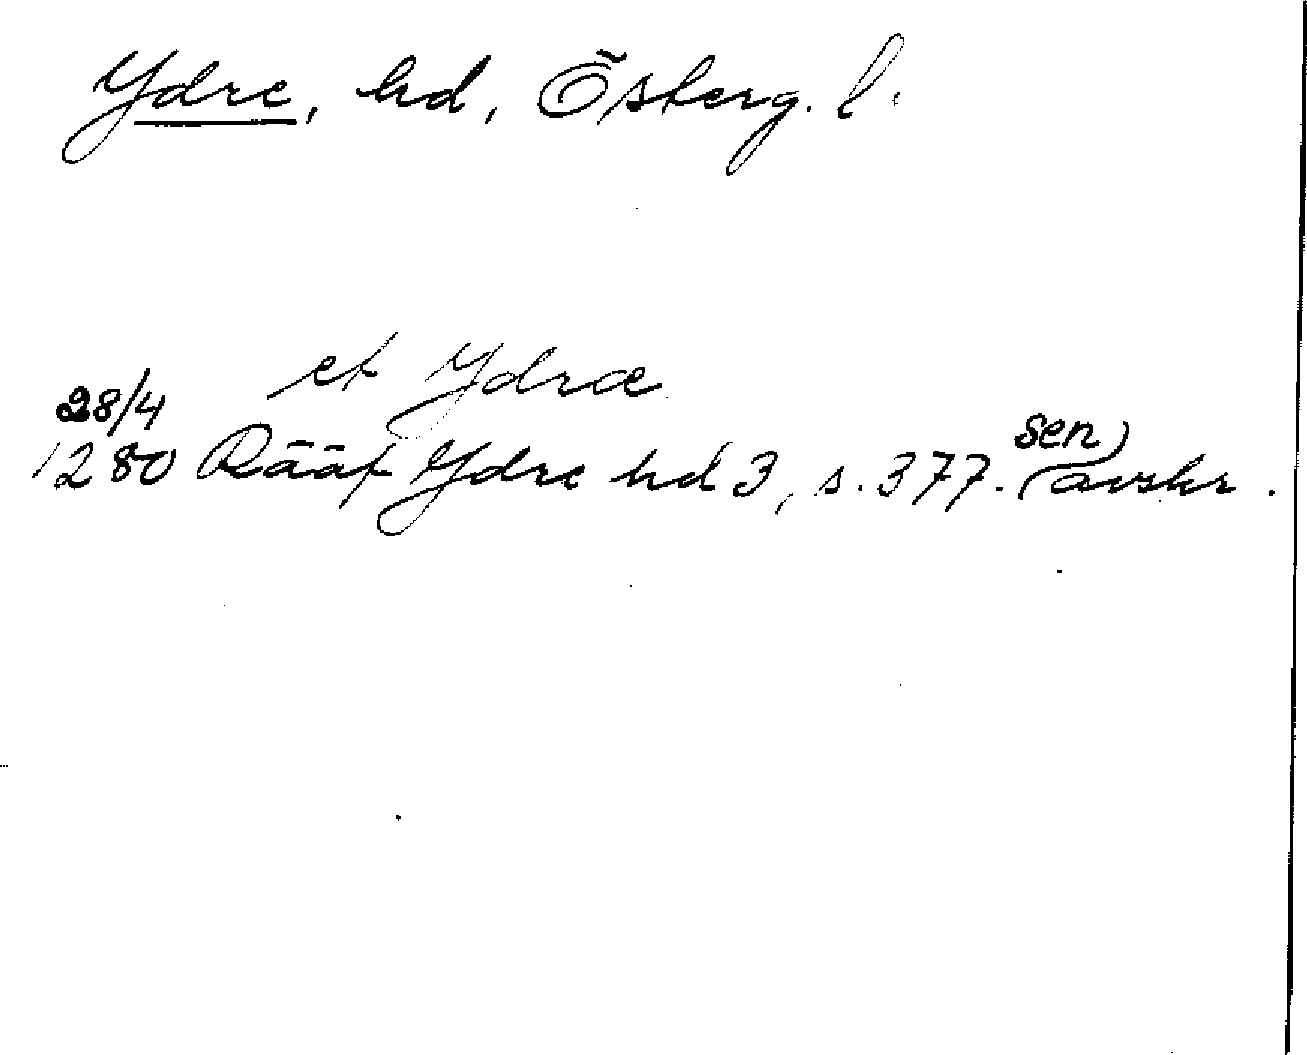 Ydre, hd, Österg. l.
et Ydræ
28/4
1280 Rääf Ydre hd 3, s. 377. (sen) avskr.